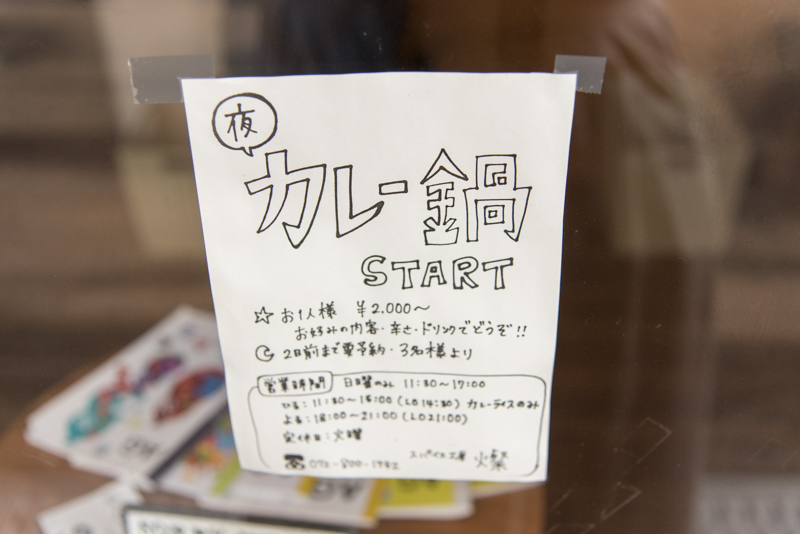 夜
カレー鍋
START
☆ お1人様 ¥2.000〜
お好みの内容・辛さ・ドリンクでどうぞ!!
2日前まで要予約・3名様より
営業時間 日曜のみ 11:30〜17:00
ひる:11:30〜15:00 (LO14:30) カレーデイスのみ
よる:18:00〜21:00 (LO21:00)
定休日:火曜
☎
スパイス工房 燦